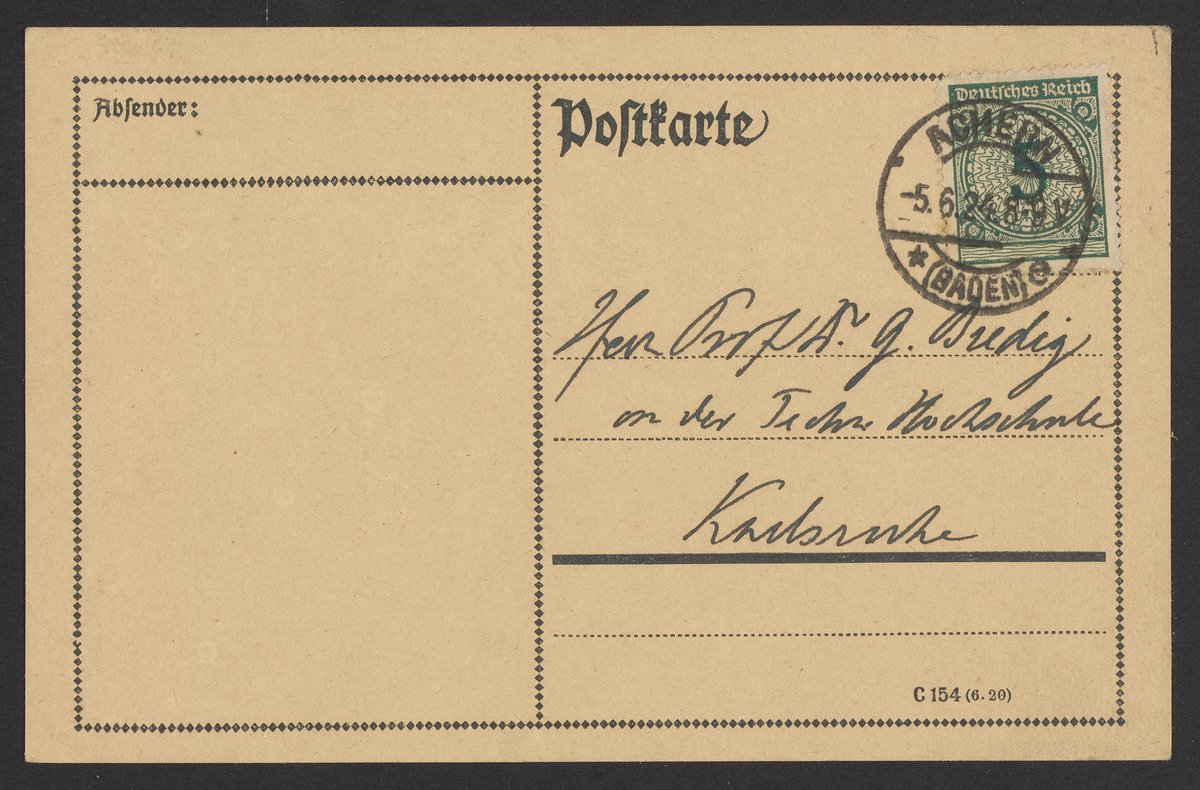 Absender:
Postkarte
Deutsches Reich
5
ACHERN
-5.6.24.8-9 V
* (BADEN) *
Herr Prof Dr. G. Bredig
an der Techn Hochschule
Karlsruhe
C 154 (6. 20)